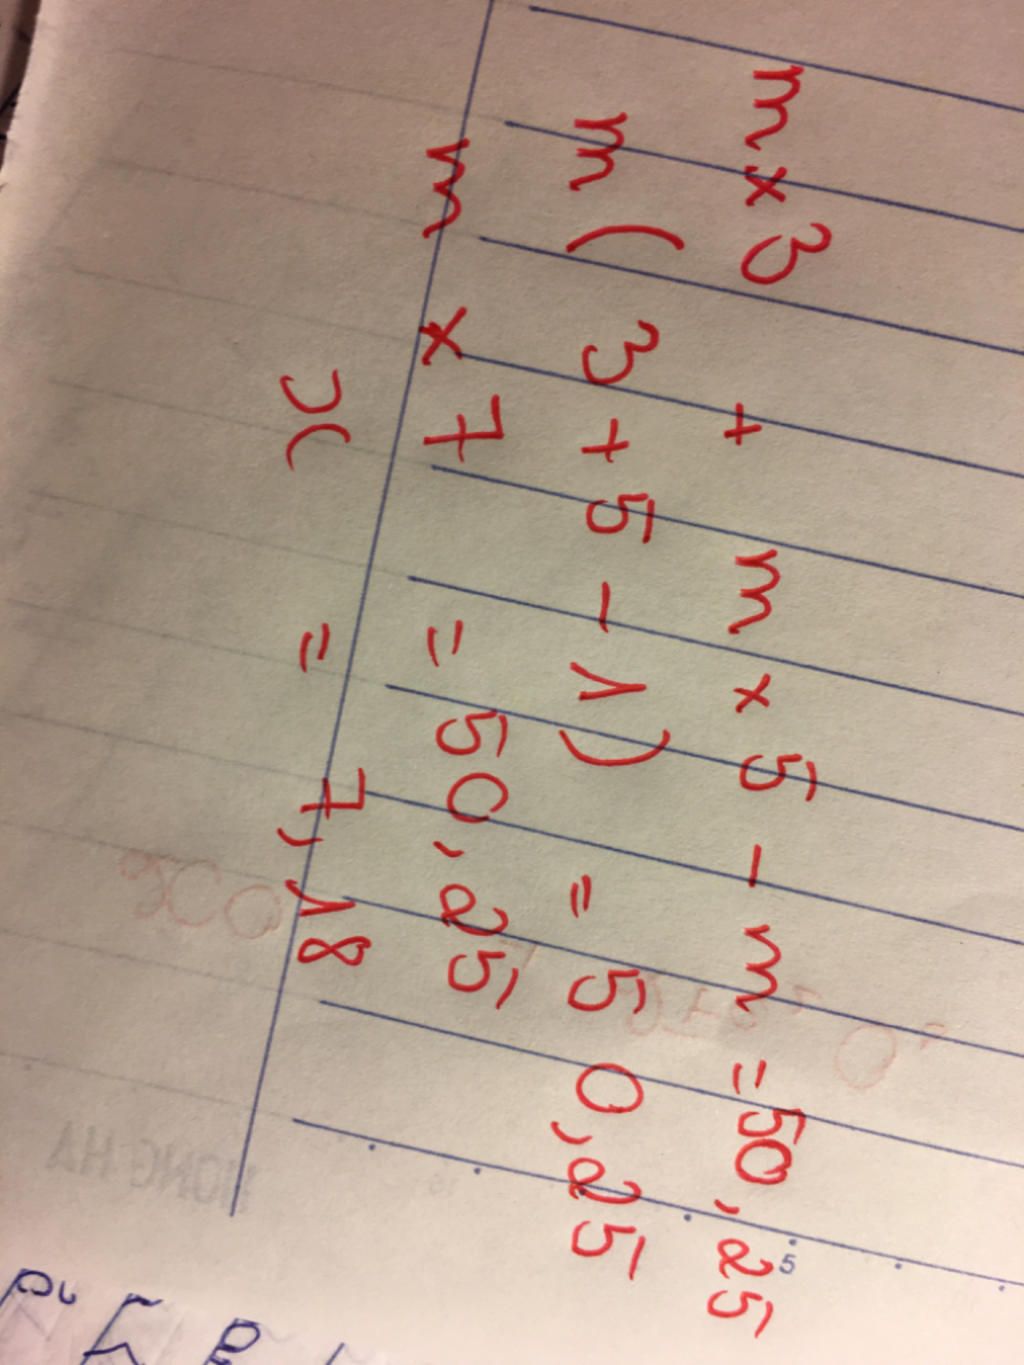 m × 3 + m × 5 - m = 50,25
m ( 3 + 5 - 1 ) = 50,25
m × 7 = 50,25
x = 7,18
HONG HA
5